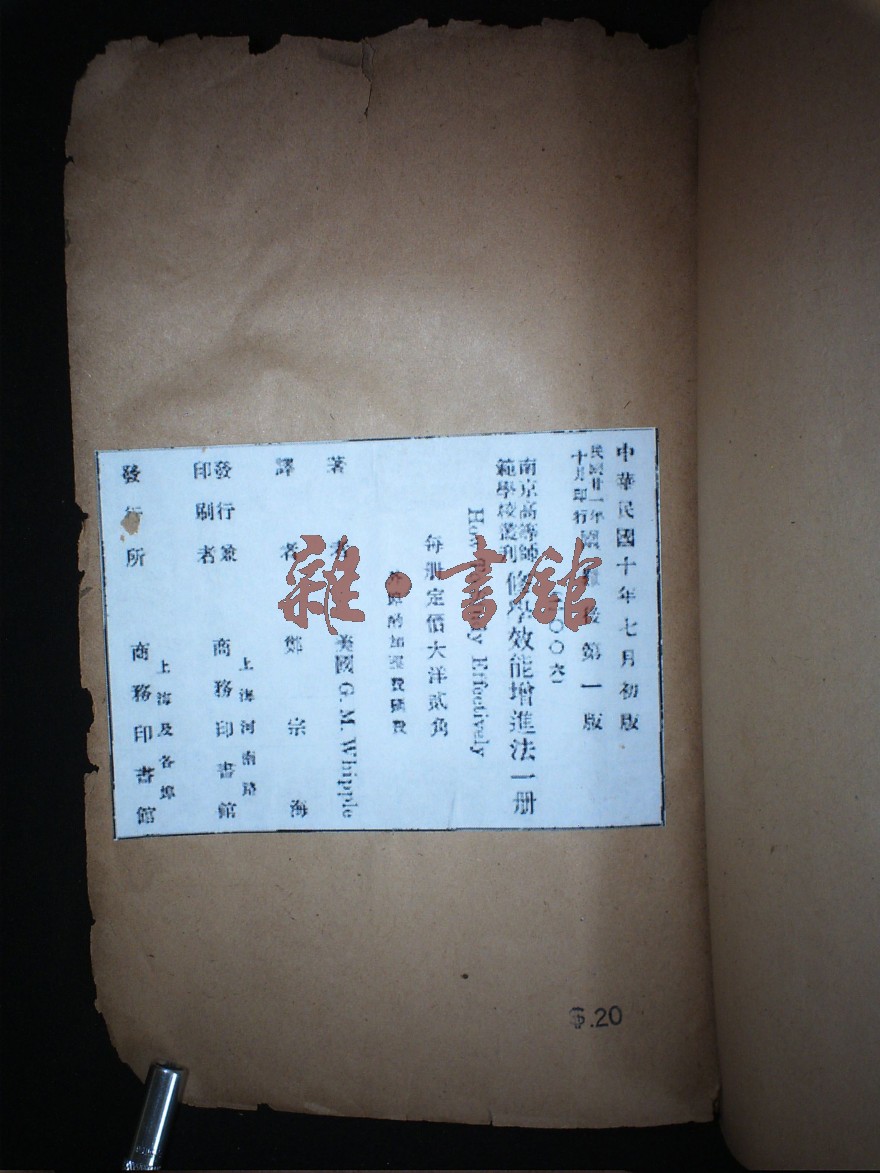 中華民國十年七月初版
民國廿一年
十月印行
國難後第一版
(二〇〇六)
南京高等師
範學校叢刊
修學效能增進法一册
How To Study Effectively
每册定價大洋貳角
外埠酌加運費匯費
著者 美國 G. M. Whipple
譯者 鄭宗海
發行兼
印刷者
上海河南路
商務印書館
發行所
上海及各埠
商務印書館
雜·書館
$.20